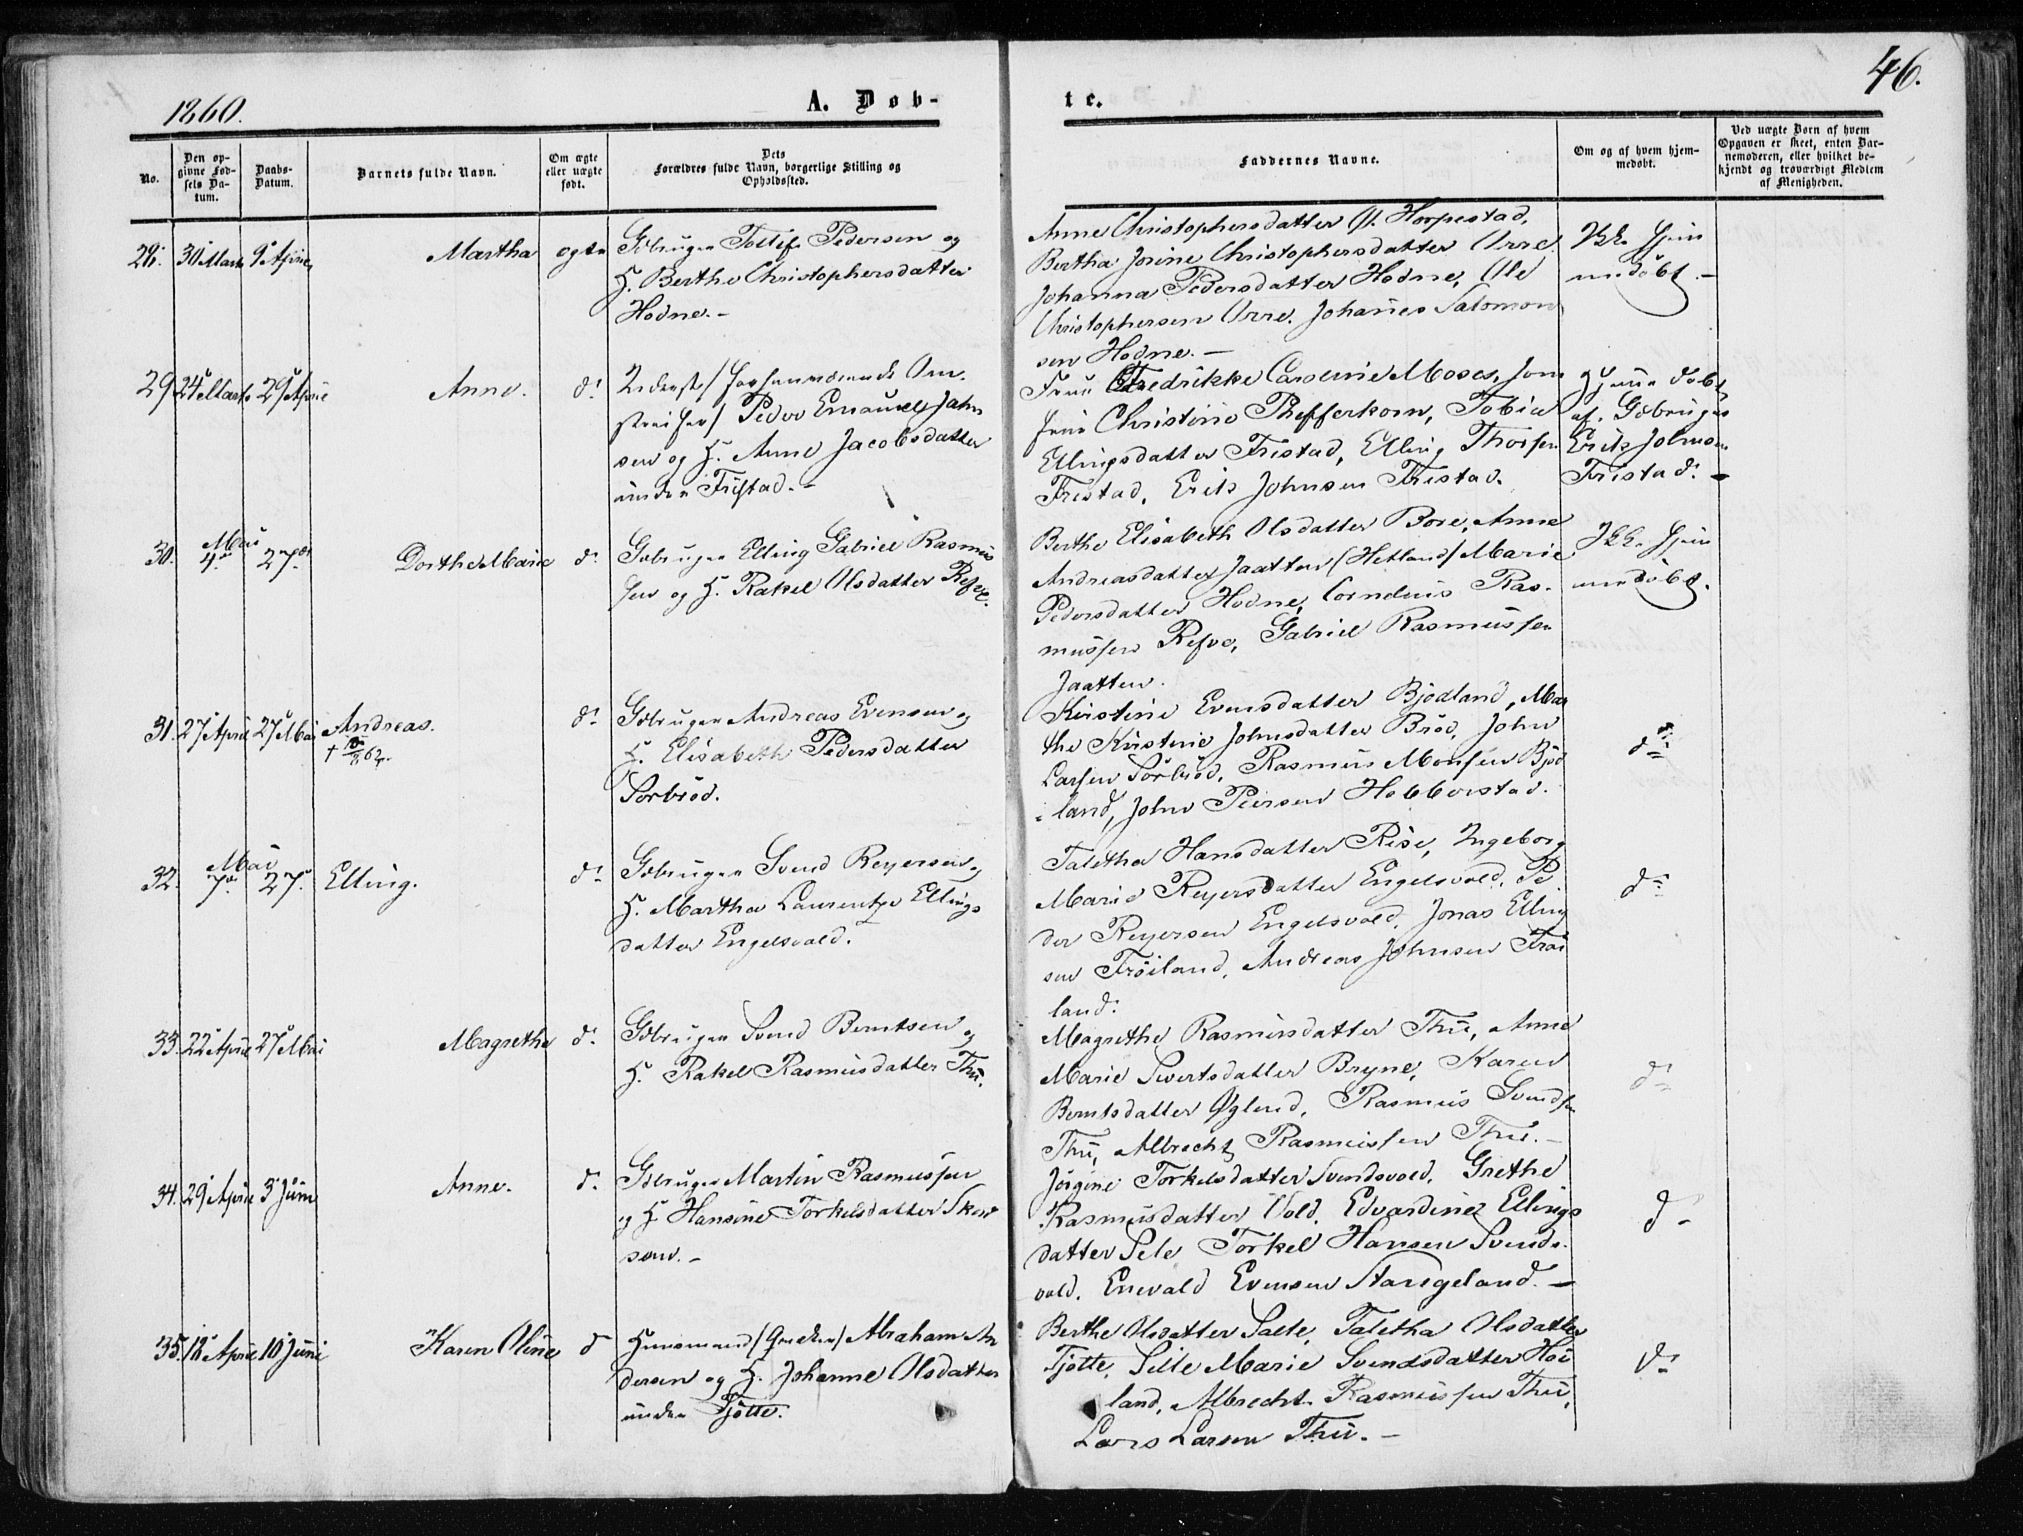 1860.
A. Døb-
te.
46.
No.
Den op-
givne Fød-
sels Da-
tum.
Daabs-
Datum.
Barnets fulde Navn.
Om ægte
eller uægte
født.
Dets
Forældres fulde Navn, borgerlige Stilling og
Opholdssted.
Faddernes Navne.
Om og af hvem hjem-
medøbt.
Ved uægte Børn af hvem
Opgaven er skeet, enten Bar-
nemoderen, eller hvilket be-
kjendt og troværdigt Medlem
af Menigheden.
28. 30 Marts 9 April Martha ægte Gbruger Tollif Pedersen og
H. Berthe Christophersdatter
Hodne.-
Anne Christophersdatter Horpestad,
Bertha Jorine Christophersdatter Orre.
Johanna Pedersdatter Hodne, Ole
Christophersen Orre. Johannes Salomon
sen Hodne.-
Ikke hjem
medøbt.-
29 24 Marts 29 April Anne. do
Peder Emanuel Jahn
sen og H. Anne Jacobsdatter
under Fristad.-
Fredrikke Caroline Moses, Jom
fru Christine Pfefferkorn, Tobia
Ellingsdatter Fristad, Elling Thorsen
Fristad, Erik Johnsen Fristad.
Hjemmedøbt
af Gbruger
Erik Johnsen
Fristad.-
30. Mai 4. 27. Dorthe Marie do Gbruger Elling Gabriel Rasmus
sen og H. Rakel Olsdatter Refve.
Berthe Elisabeth Olsdatter Bore, Anne
Andreasdatter Jaatten (Hetland) Marie
Pedersdatter Hodne, Cornelius Ras-
mussen Refve, Gabriel Rasmussen
Jaatten.
Ikke hjem
medøbt.
31. 27 April 27 Mai Andreas. do Gbruger Andreas Evensen og
H. Elisabeth Pedersdatter
Sørbrød.
Kirstine Evensdatter Bjodland, Mar
the Kirstine Johnsdatter Brød, John
Larsen Sørbrød, Rasmus Monsen Bjod
land, John Peersen Hobberstad.
do
32. Mai 7. 27. Elling. do Gbruger Svend Reyersen og
H. Martha Laurentze Ellings
datter Engelsvold.
Taletha Hansdatter Rise, Ingeborg
Marie Reyersdatter Engelsvold, Pe
der Reyersen Engelsvold, Jonas Elling
sen Frøiland, Andreas Johnsen Frøi
land.
do
33. 22 April 27 Mai Magrethe do Gbruger Svend Berntsen og
H. Rakel Rasmusdatter Thu.
Magrethe Rasmusdatter Thu, Anne
Marie Sivertsdatter Bryne, Karen
Berntsdatter Øglend, Rasmus Svendsen
Thu, Albrecht Rasmussen Thu.-
do
34. 29 April 3 Juni Anne. do Gbruger Martin Rasmussen
og H Hansine Torkelsdatter
Jørgine Torkelsdatter Svendsvold, Grethe
Rasmusdatter Vold, Edvardine Ellings
datter Sele Torkel Hansen Svends-
vold, Enevald Evensen Stangeland.-
do
35. 18 April 10 Juni Karen Oline do Huusmand Abraham An
dersen og H. Johanne Olsdatter
under Tjøtte.
Berthe Olsdatter Salte, Taletha Olsdatter
Tjøtte, Sille Marie Svendsdatter Høi
land, Albrecht Rasmussen Thu,
Lars Larsen Thu.-
do